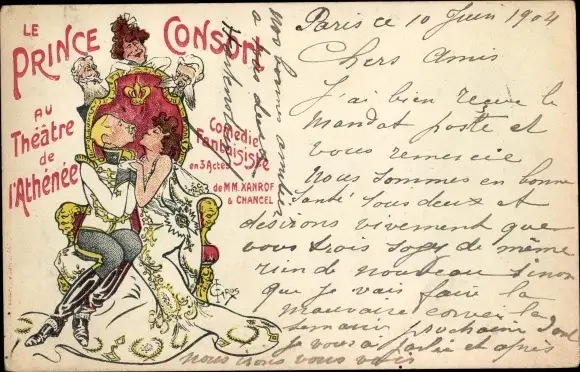 LE
PRINCE CONSORT
AU
Théâtre
de
l'Athénée
Comédie
Fantaisiste
en 3 Actes
de M.M. XANROF
& CHANCEL
Paris ce 10 Juin 1904
Chers Amis
J'ai bien reçue le
mandat poste et
vous remercie
Nous sommes en bonne
santé tous deux et
desirons vivement que
vous trois soyez de même
rien de nouveau sinon
que je vais faire la
mauvaise corvée la
semaine prochaine dont
je vous ai parlée et après
nous irons vous voir
Nos bonnes amitiés
a tous deux